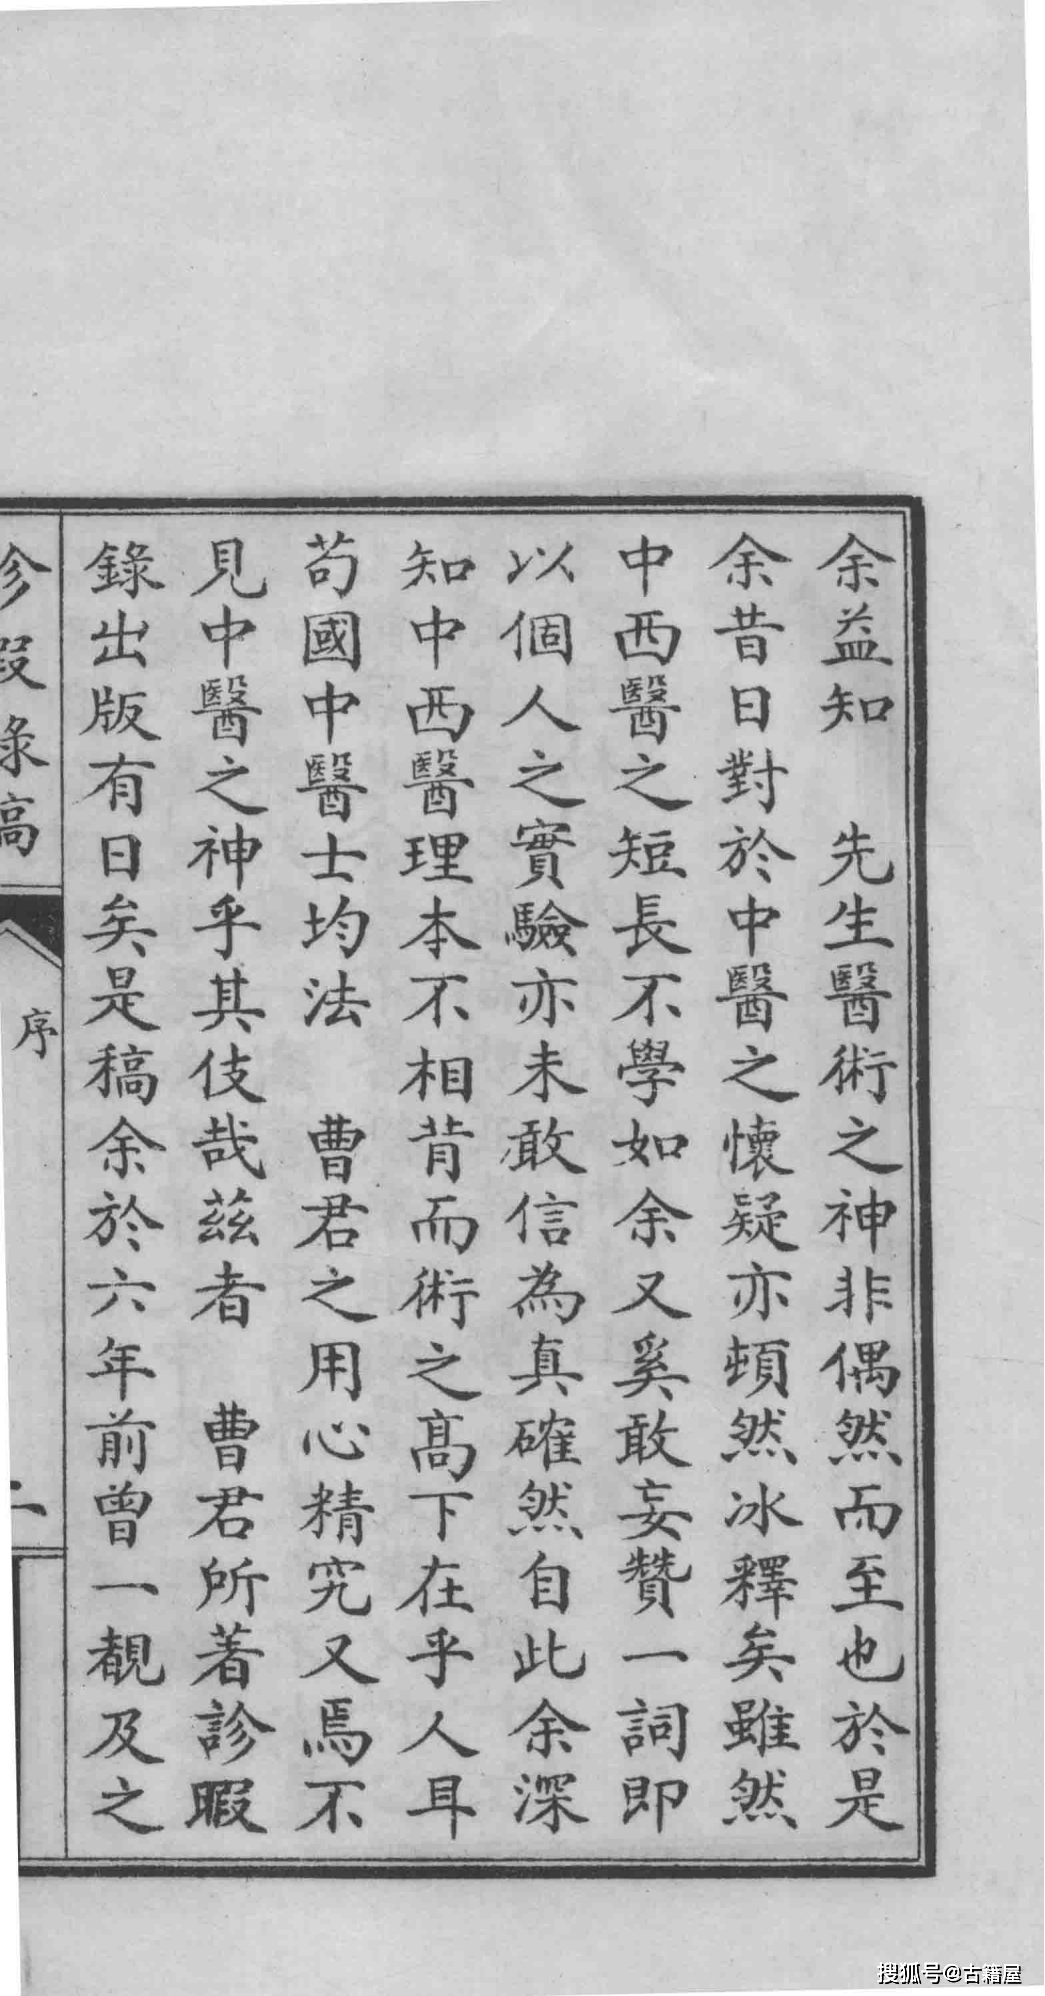 余益知　先生醫術之神非偶然而至也於是
余昔日對於中醫之懷疑亦頓然冰釋矣雖然
中西醫之短長不學如余又奚敢妄贊一詞即
以個人之實驗亦未敢信為真確然自此余深
知中西醫理本不相背而術之高下在乎人耳
苟國中醫士均法　曹君之用心精究又焉不
見中醫之神乎其伎哉茲者　曹君所著診暇
錄出版有日矣是稿余於六年前曾一覩及之
診暇錄稿
序
二
搜狐号@古籍屋